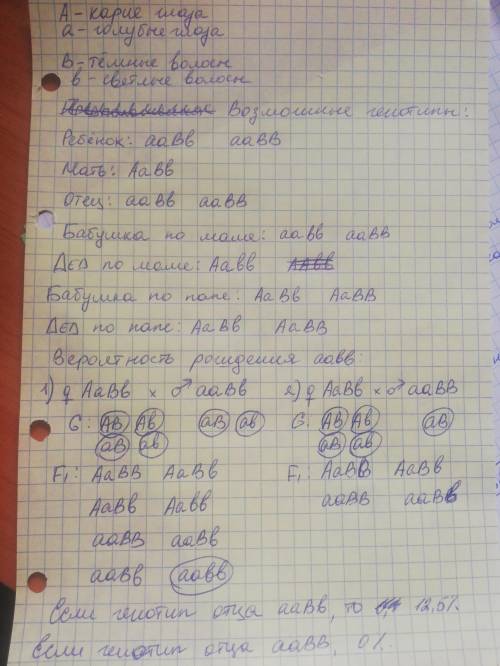 А - карие глаза
а - голубые глаза
В - тёмные волосы
в - светлые волосы
Возможные генотипы:
Ребёнок: ааВв ааВВ
Мать: АаВв
Отец: ааВв ааВВ
Бабушка по маме: ааВв ааВВ
Дед по маме: Аавв ААвв
Бабушка по папе: АаВв АаВВ
Дед по папе: АаВв АаВВ
Вероятность рождения аавв:
1) ♀ АаВв × ♂ ааВв 2) ♀ АаВв × ♂ ааВВ
G: АВ Ав аВ ав G: АВ Ав аВ
аВ ав аВ ав
F₁: АаВВ АаВв F₁: АаВВ АаВв
АаВв Аавв ааВВ ааВв
ааВВ ааВв
ааВв аавв
Если генотип отца ааВв, то 12,5%.
Если генотип отца ааВВ, 0%.